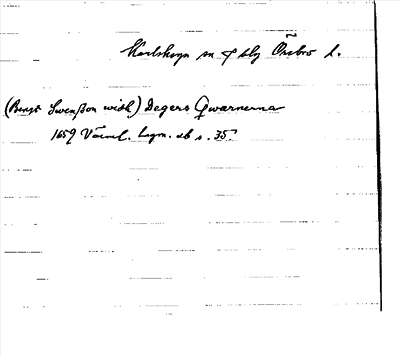 Karlskoga sn o. f blg Örebro l.
(Bengt Swenßon widh) Degers Qwarnerna
1659 Värml. Lagm. db s. 35.